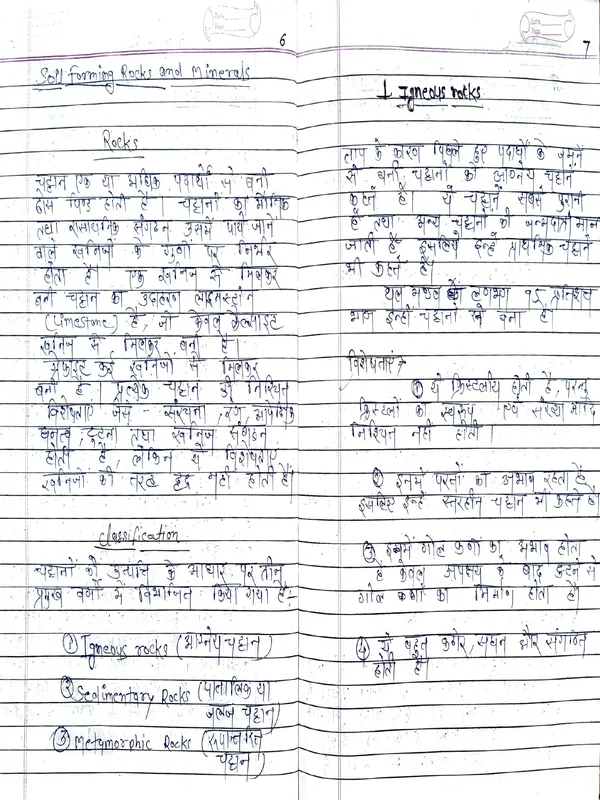 6
Soil forming Rocks and Minerals
Rocks
चट्टान एक या अधिक पदार्थों से बनी
ठोस पिण्ड होती हैं। चट्टानों का भौतिक
तथा रासायनिक संगठन उसमें पाये जाने
वाले खनिजों के गुणों पर निर्भर
होता है। एक खनिज से मिलकर
बनी चट्टान का उदाहरण लाइमस्टोन
(Limestone) है, जो केवल कैल्साइट
खनिज से मिलकर बनी है।
ग्रेनाइट कई खनिजों से मिलकर
बना है। प्रत्येक चट्टान की निश्चित
विशेषताएं जैसे - संरचना, रंग, आपेक्षिक
घनत्व, दृढ़ता तथा खनिज संगठन
होती हैं, लेकिन ये विशेषताएं
खनिजों की तरह दृढ़ नहीं होती हैं।
Classification
चट्टानों को उत्पत्ति के आधार पर तीन
प्रमुख वर्गों में विभाजित किया गया है:-
① Igneous rocks (आग्नेय चट्टान)
② Sedimentary Rocks (पातालिक या
जलज चट्टान)
③ Metamorphic Rocks (रूपान्तरित
चट्टान)
7
1 Igneous rocks
ताप के कारण पिघले हुए पदार्थों के जमने
से बनी चट्टानों को आग्नेय चट्टान
कहते हैं। ये चट्टानें सबसे पुरानी
हैं तथा अन्य चट्टानों की जन्मदाता मानी
जाती हैं इसलिये इन्हें प्राथमिक चट्टान
भी कहते हैं।
थल मण्डल का लगभग ९५ प्रतिशत
भाग इन्हीं चट्टानों से बना है।
विशेषताएं-
① ये क्रिस्टलीय होती हैं, परन्तु
क्रिस्टलों का स्वरूप एवं संख्या आदि
निश्चित नहीं होती।
② इनमें परतों का अभाव रहता है
इसलिए इन्हें स्तरहीन चट्टान भी कहते हैं
③ इनमें गोल कणों का अभाव होता
है केवल अपक्षय के बाद टूटने से
गोल कणों का निर्माण होता है।
④ ये बहुत कठोर, सघन और संगठित
होती हैं।